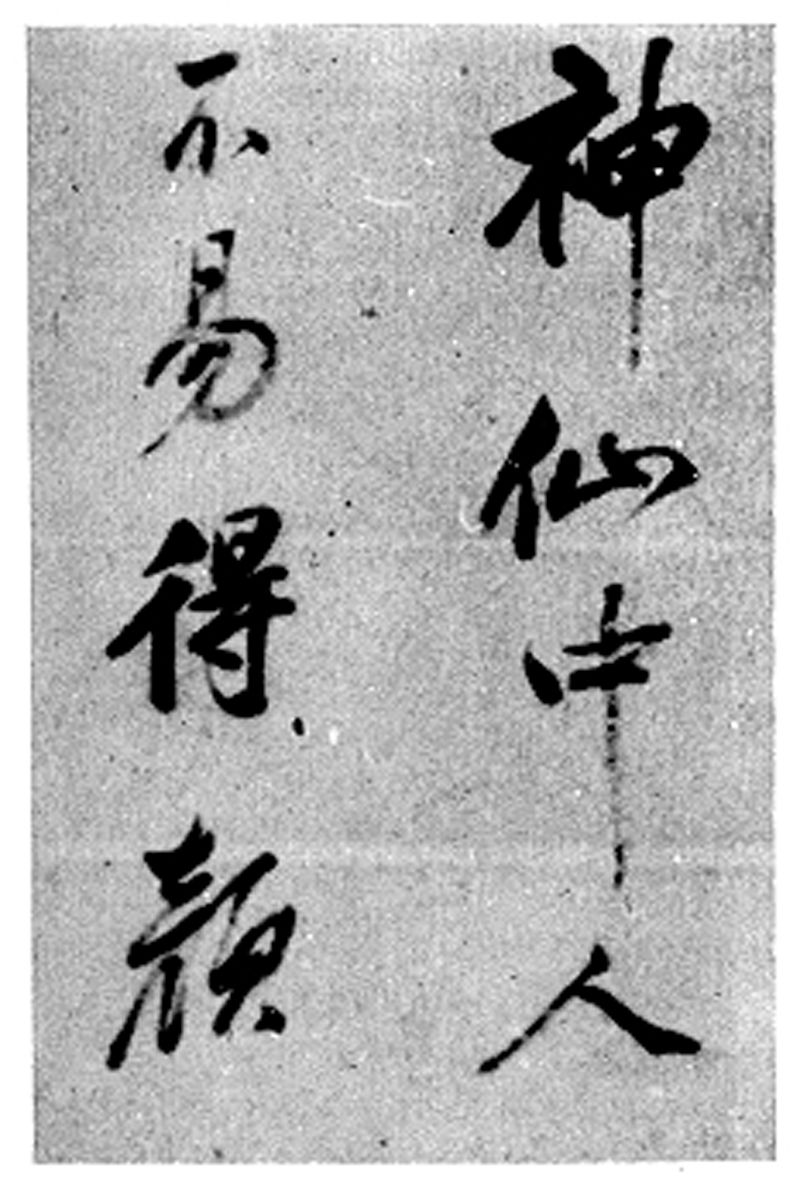 神仙中人
不易得顏